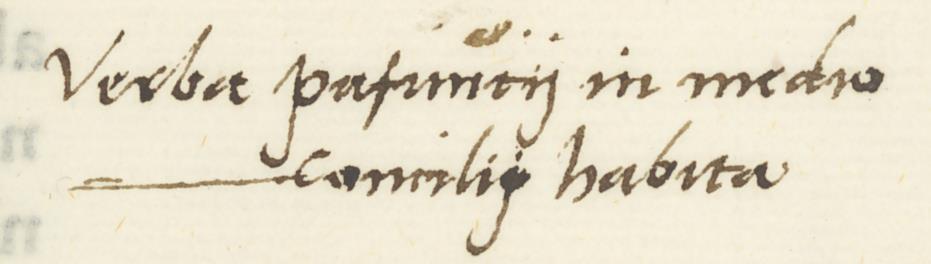 Verba pafuntij in medio
concilij habita